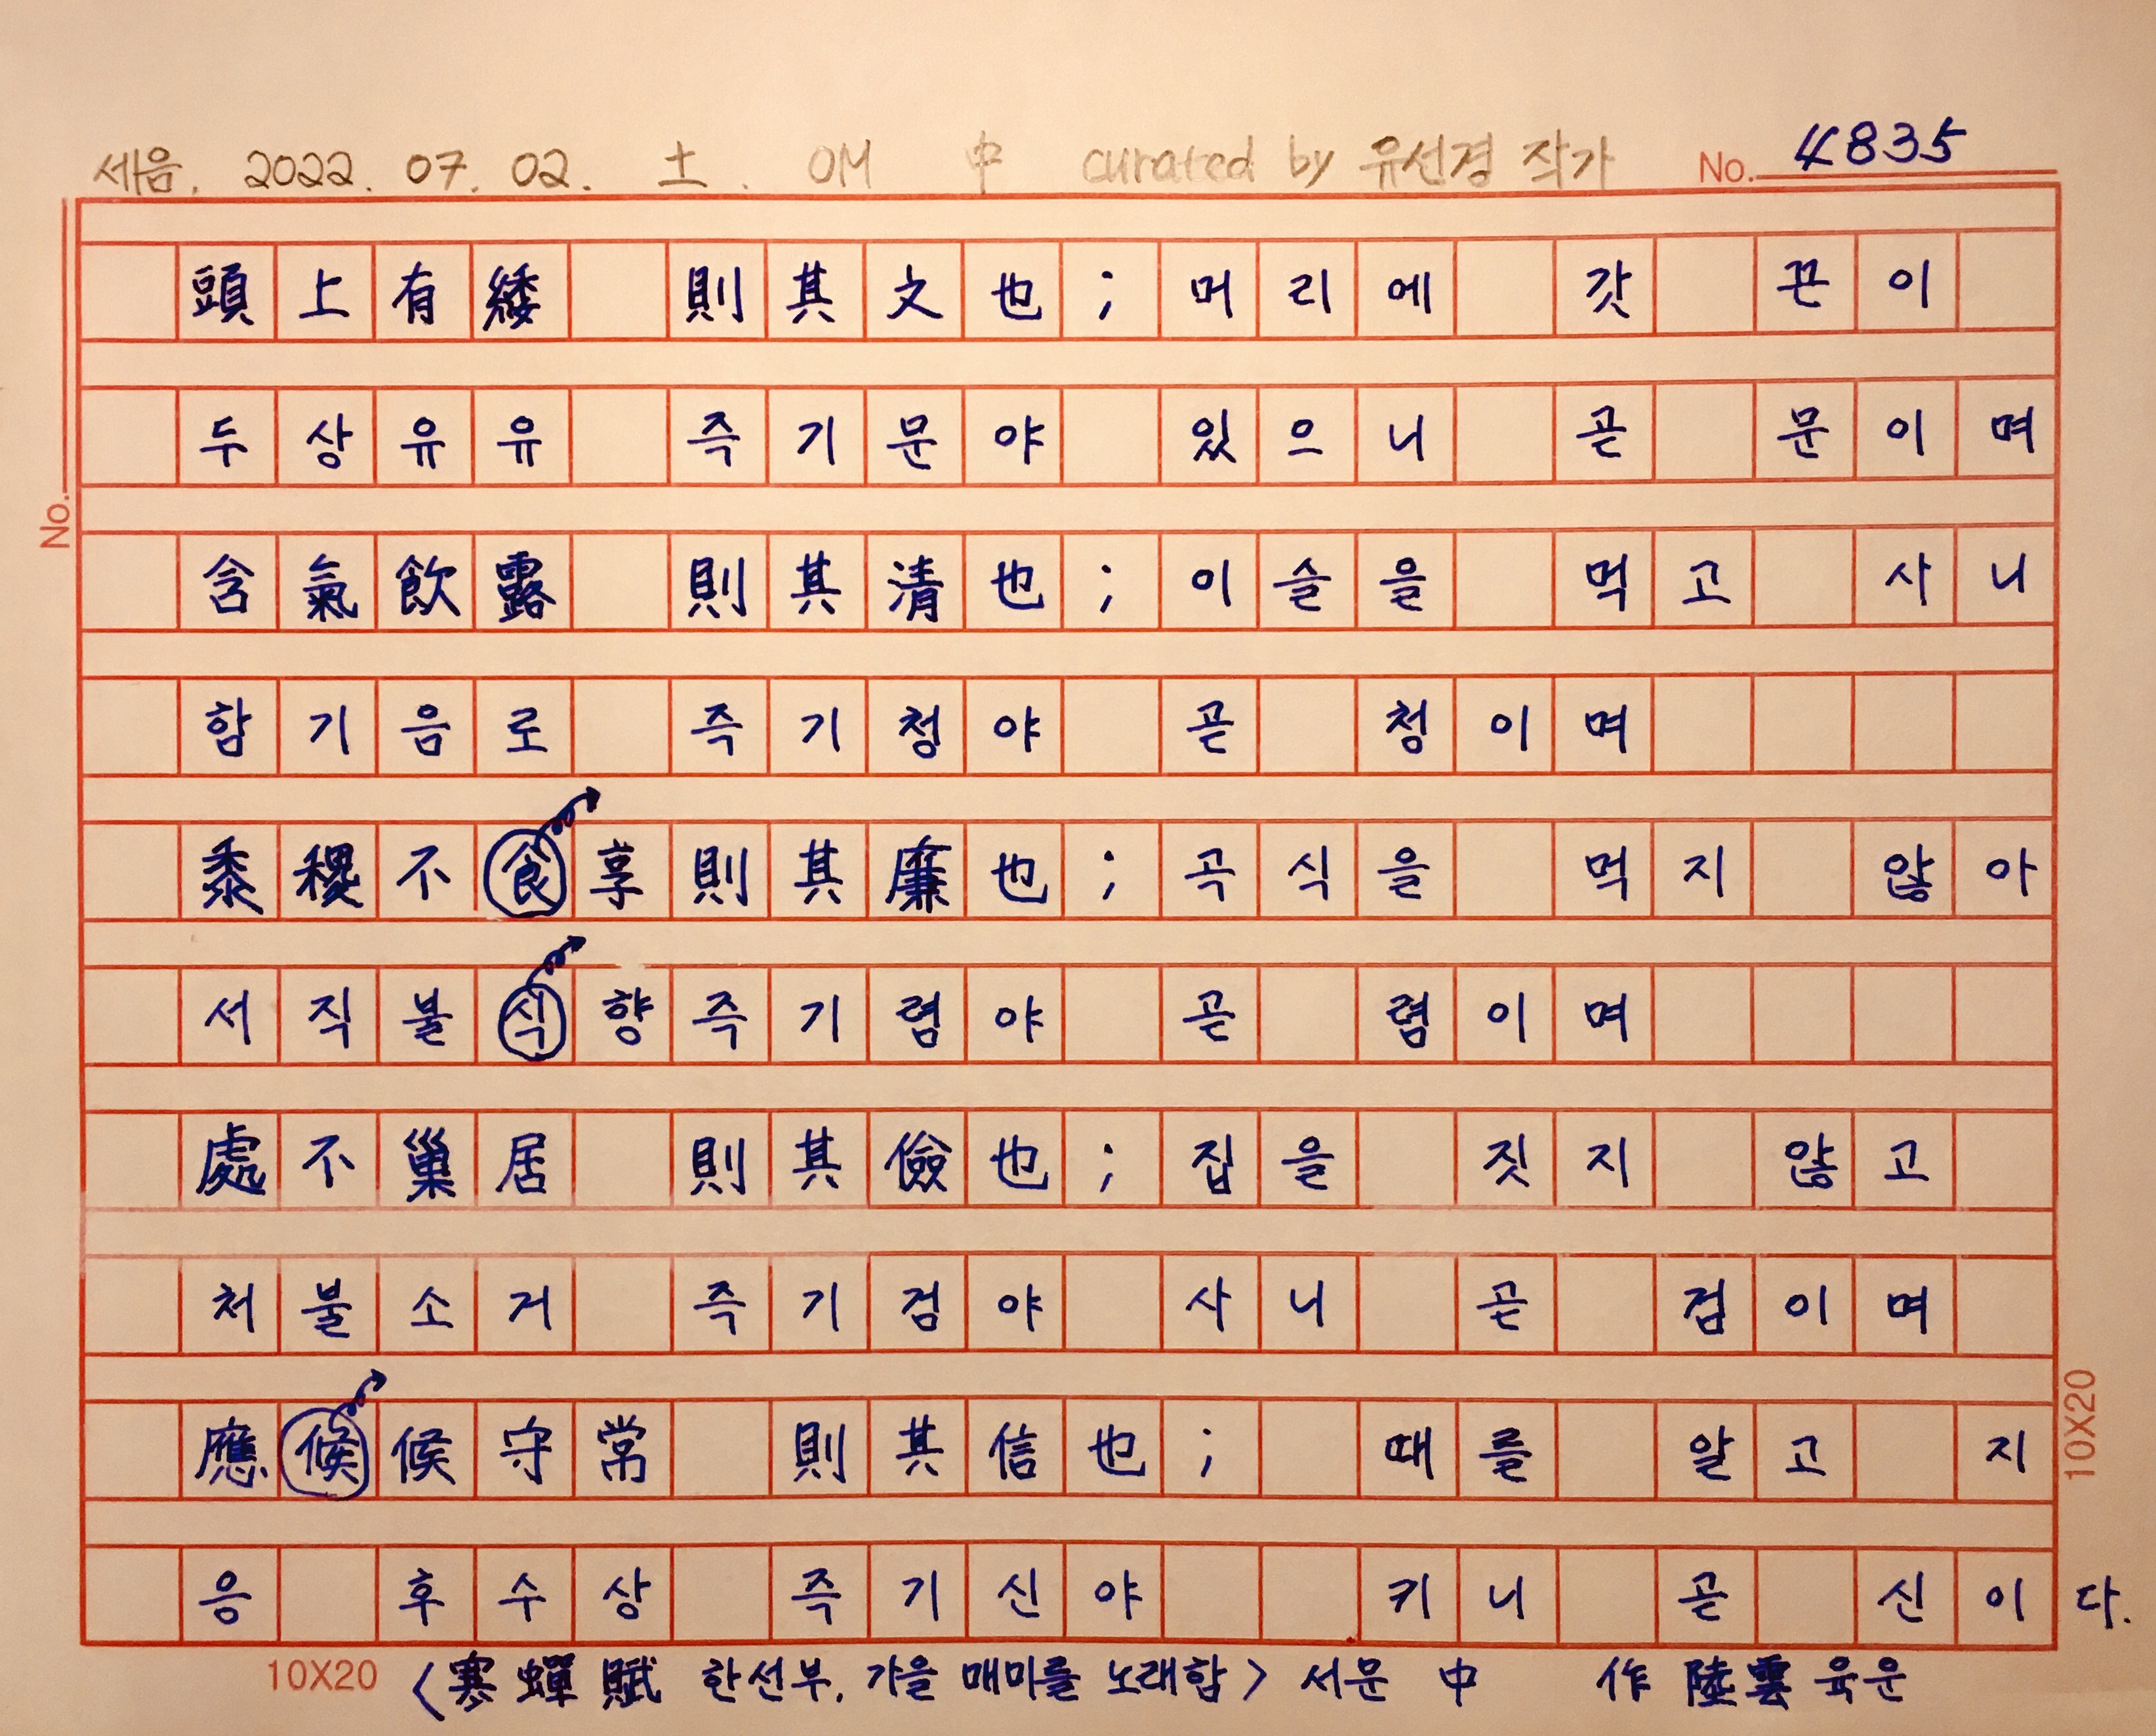 세음. 2022. 07. 02. 土. OM 中 curated by 유선경 작가 No. 4835
頭上有緌 則其文也; 머리에 갓 끈이
두상유유 즉기문야 있으니 곧 문이며
No.
含氣飮露 則其清也; 이슬을 먹고 사니
함기음로 즉기청야 곧 청이며
黍稷不食享則其廉也; 곡식을 먹지 않아
서직불식향즉기렴야 곧 렴이며
處不巢居 則其儉也; 집을 짓지 않고
처불소거 즉기검야 사니 곧 검이며
應候候守常 則其信也; 때를 알고 지
10X20
응 후수상 즉기신야 키니 곧 신이다.
10X20 〈寒蟬賦 한선부, 가을 매미를 노래함〉 서문 中 作 陸雲 육운